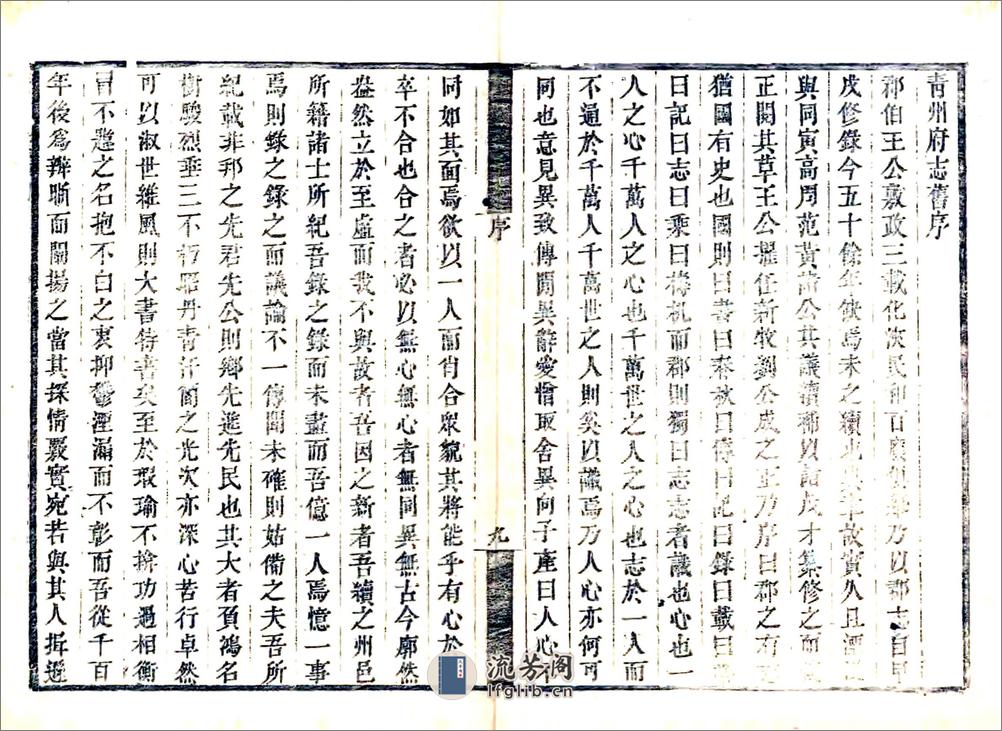 青州府志舊序
郡伯王公敷政三載化洽民和百廢俱舉乃以郡志自甲
戌修錄今五十餘年缺焉未之續也其年故實久且湮
與同寅高周范黃諸公共議續郡以諸茂才纂修之而
正閱其草王公擢任新牧劉公成之正乃序曰郡之有
猶國有史也國則曰書曰春秋曰傳曰記曰錄曰載曰
曰記曰志曰乘曰檮杌而郡則獨曰志志者識也心也一
人之心千萬人之心也千萬世之人之心也志於一人而
不通於千萬人千萬世之人則奚以識焉乃人心亦何可
同也意見異致傳聞異辭愛憎取舍異向子產曰人心不
同如其面焉欲以一人而肖合眾貌其將能乎有心於
卒不合也合之者必以無心無心者無同異無古今廓然
盎然立於至虛而我不與故者吾因之新者吾續之州邑
所籍諸士所紀吾錄之錄而未盡而吾億一人焉憶一事
焉則錄之錄之而議論不一傳聞未確則姑衞之夫吾所
紀載非邦之先君先公則鄉先進先民也其大者負鴻名
樹駿烈垂三不朽照丹青汗簡之光次亦深心苦行卓然
可以淑世維風則大書特書矣至於瑕瑜不揜功過相衡
冒不韙之名抱不白之衷抑鬱湮漏而不彰而吾從千百
年後為辨晰而闡揚之當其探情覈實宛若與其人揖遜
序
九
流芳閣
lfglib.cn